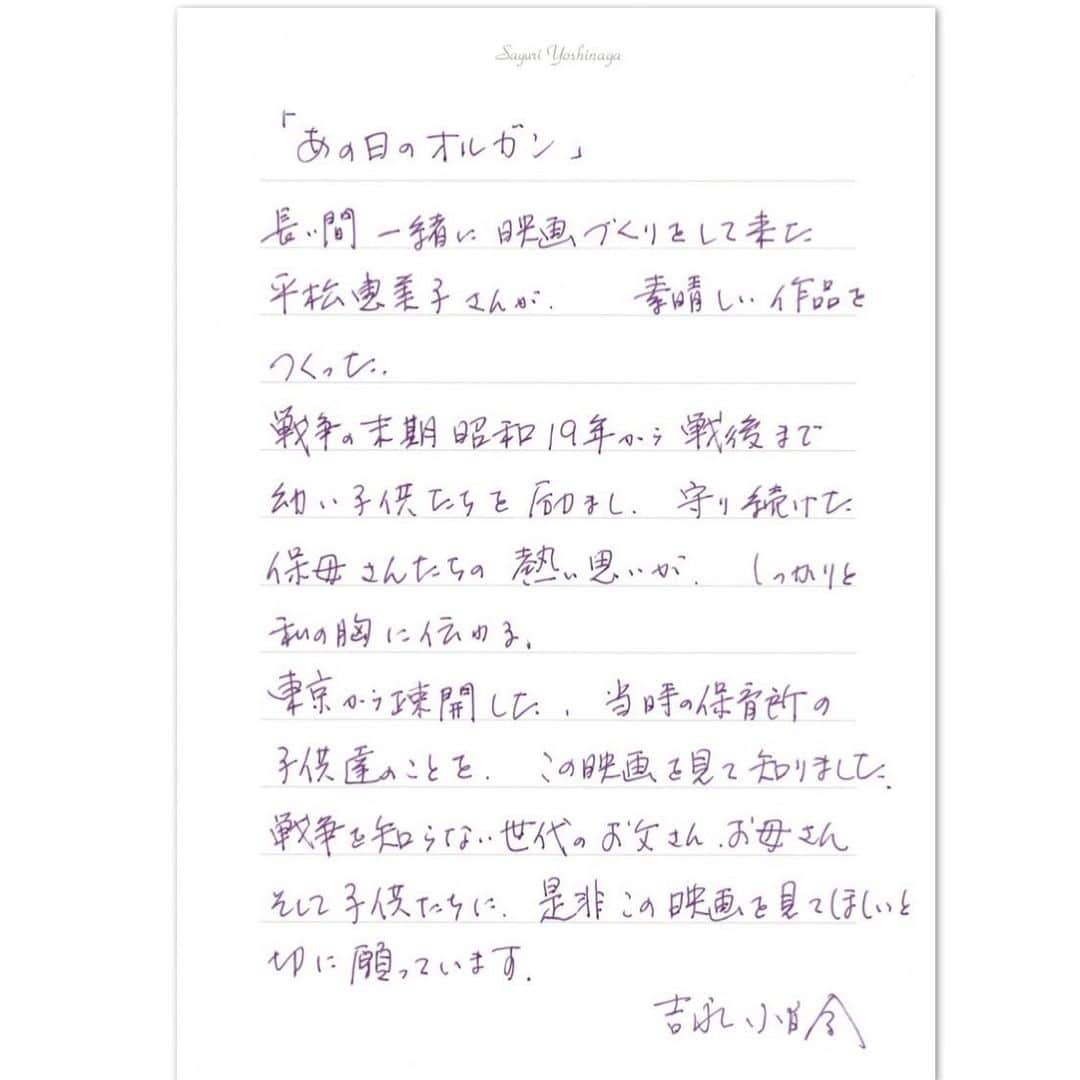 Sayuri Yoshinaga
「あの日のオルガン」
長い間 一緒に 映画づくりをして来た
平松恵美子さんが、 素晴しい作品を
つくった。
戦争の末期 昭和19年から 戦後まで
幼い子供たちを 励まし、 守り続けた
保母さんたちの 熱い思いが、 しっかりと
私の胸に伝わる。
東京から疎開した、 当時の保育所の
子供達のことを、 この映画を見て知りました。
戦争を知らない世代のお父さん、お母さん
そして子供たちに、 是非この映画を見てほしいと
切に願っています。
吉永小百合